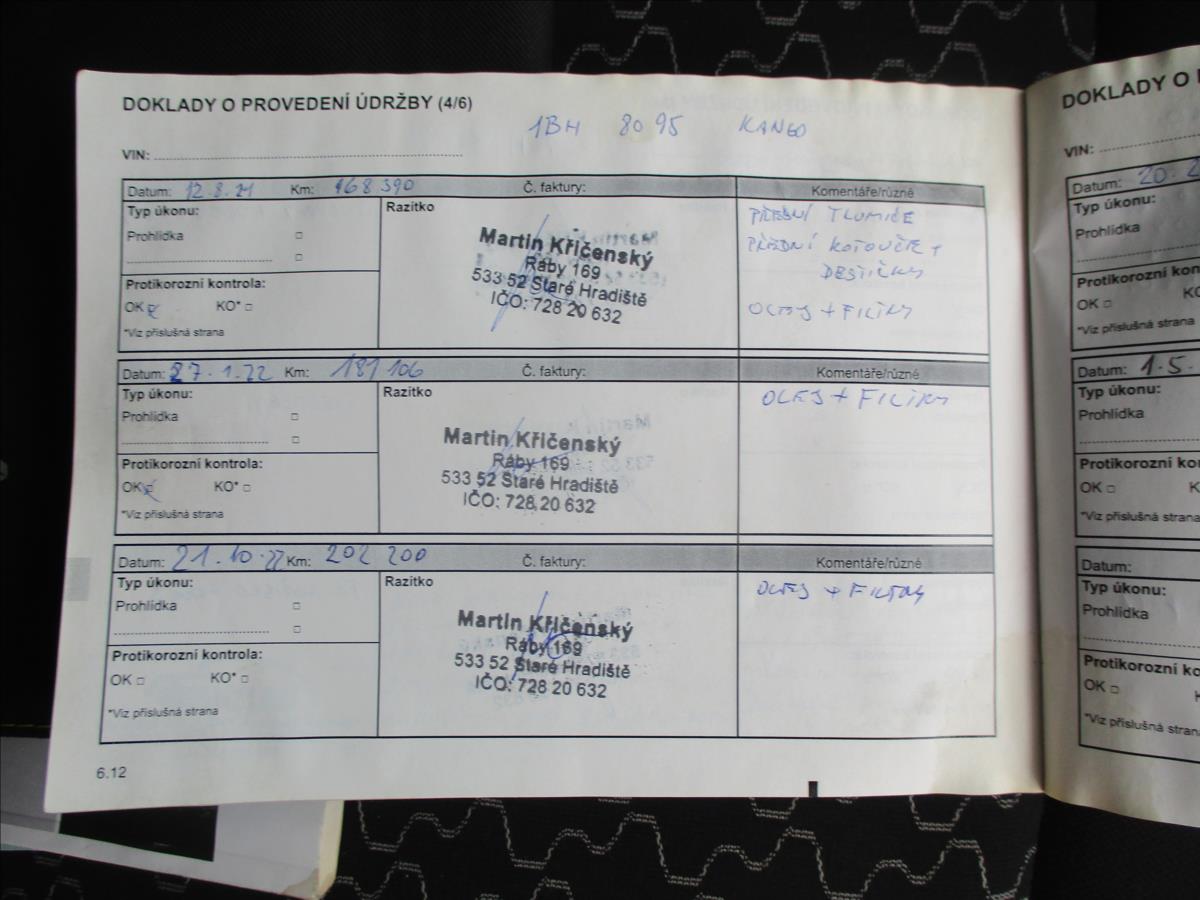 DOKLADY O PROVEDENÍ ÚDRŽBY (4/6)
1BH 8095 KANGO
VIN:
Datum: 12.8.21 Km: 168 390 Č. faktury: Komentáře/různé
Typ úkonu:
Razítko
Prohlídka
Protikorozní kontrola:
OK KO*
*Viz příslušná strana
Martin Křičenský
Ráby 169
533 52 Staré Hradiště
IČO: 728 20 632
PŘEDNÍ TLUMIČE
PŘEDNÍ KOTOUČE +
DESTIČKY
OLEJ + FILTRY
Datum: 27.1.22 Km: 181 106 Č. faktury: Komentáře/různé
Typ úkonu:
Razítko
Prohlídka
Protikorozní kontrola:
OK KO*
*Viz příslušná strana
Martin Křičenský
Ráby 169
533 52 Staré Hradiště
IČO: 728 20 632
OLEJ + FILTRY
Datum: 21.10.22 Km: 202 200 Č. faktury: Komentáře/různé
Typ úkonu:
Razítko
Prohlídka
Protikorozní kontrola:
OK KO*
*Viz příslušná strana
Martin Křičenský
Ráby 169
533 52 Staré Hradiště
IČO: 728 20 632
OLEJ + FILTRY
6.12
DOKLADY O
VIN:
Datum: 20.
Typ úkonu:
Prohlídka
Protikorozní
OK
*Viz příslušná strana
Datum: 1.5.
Typ úkonu:
Prohlídka
Protikorozní
OK
*Viz příslušná
Datum:
Typ úkonu:
Prohlídka
Protikorozní
OK
*Viz příslušná